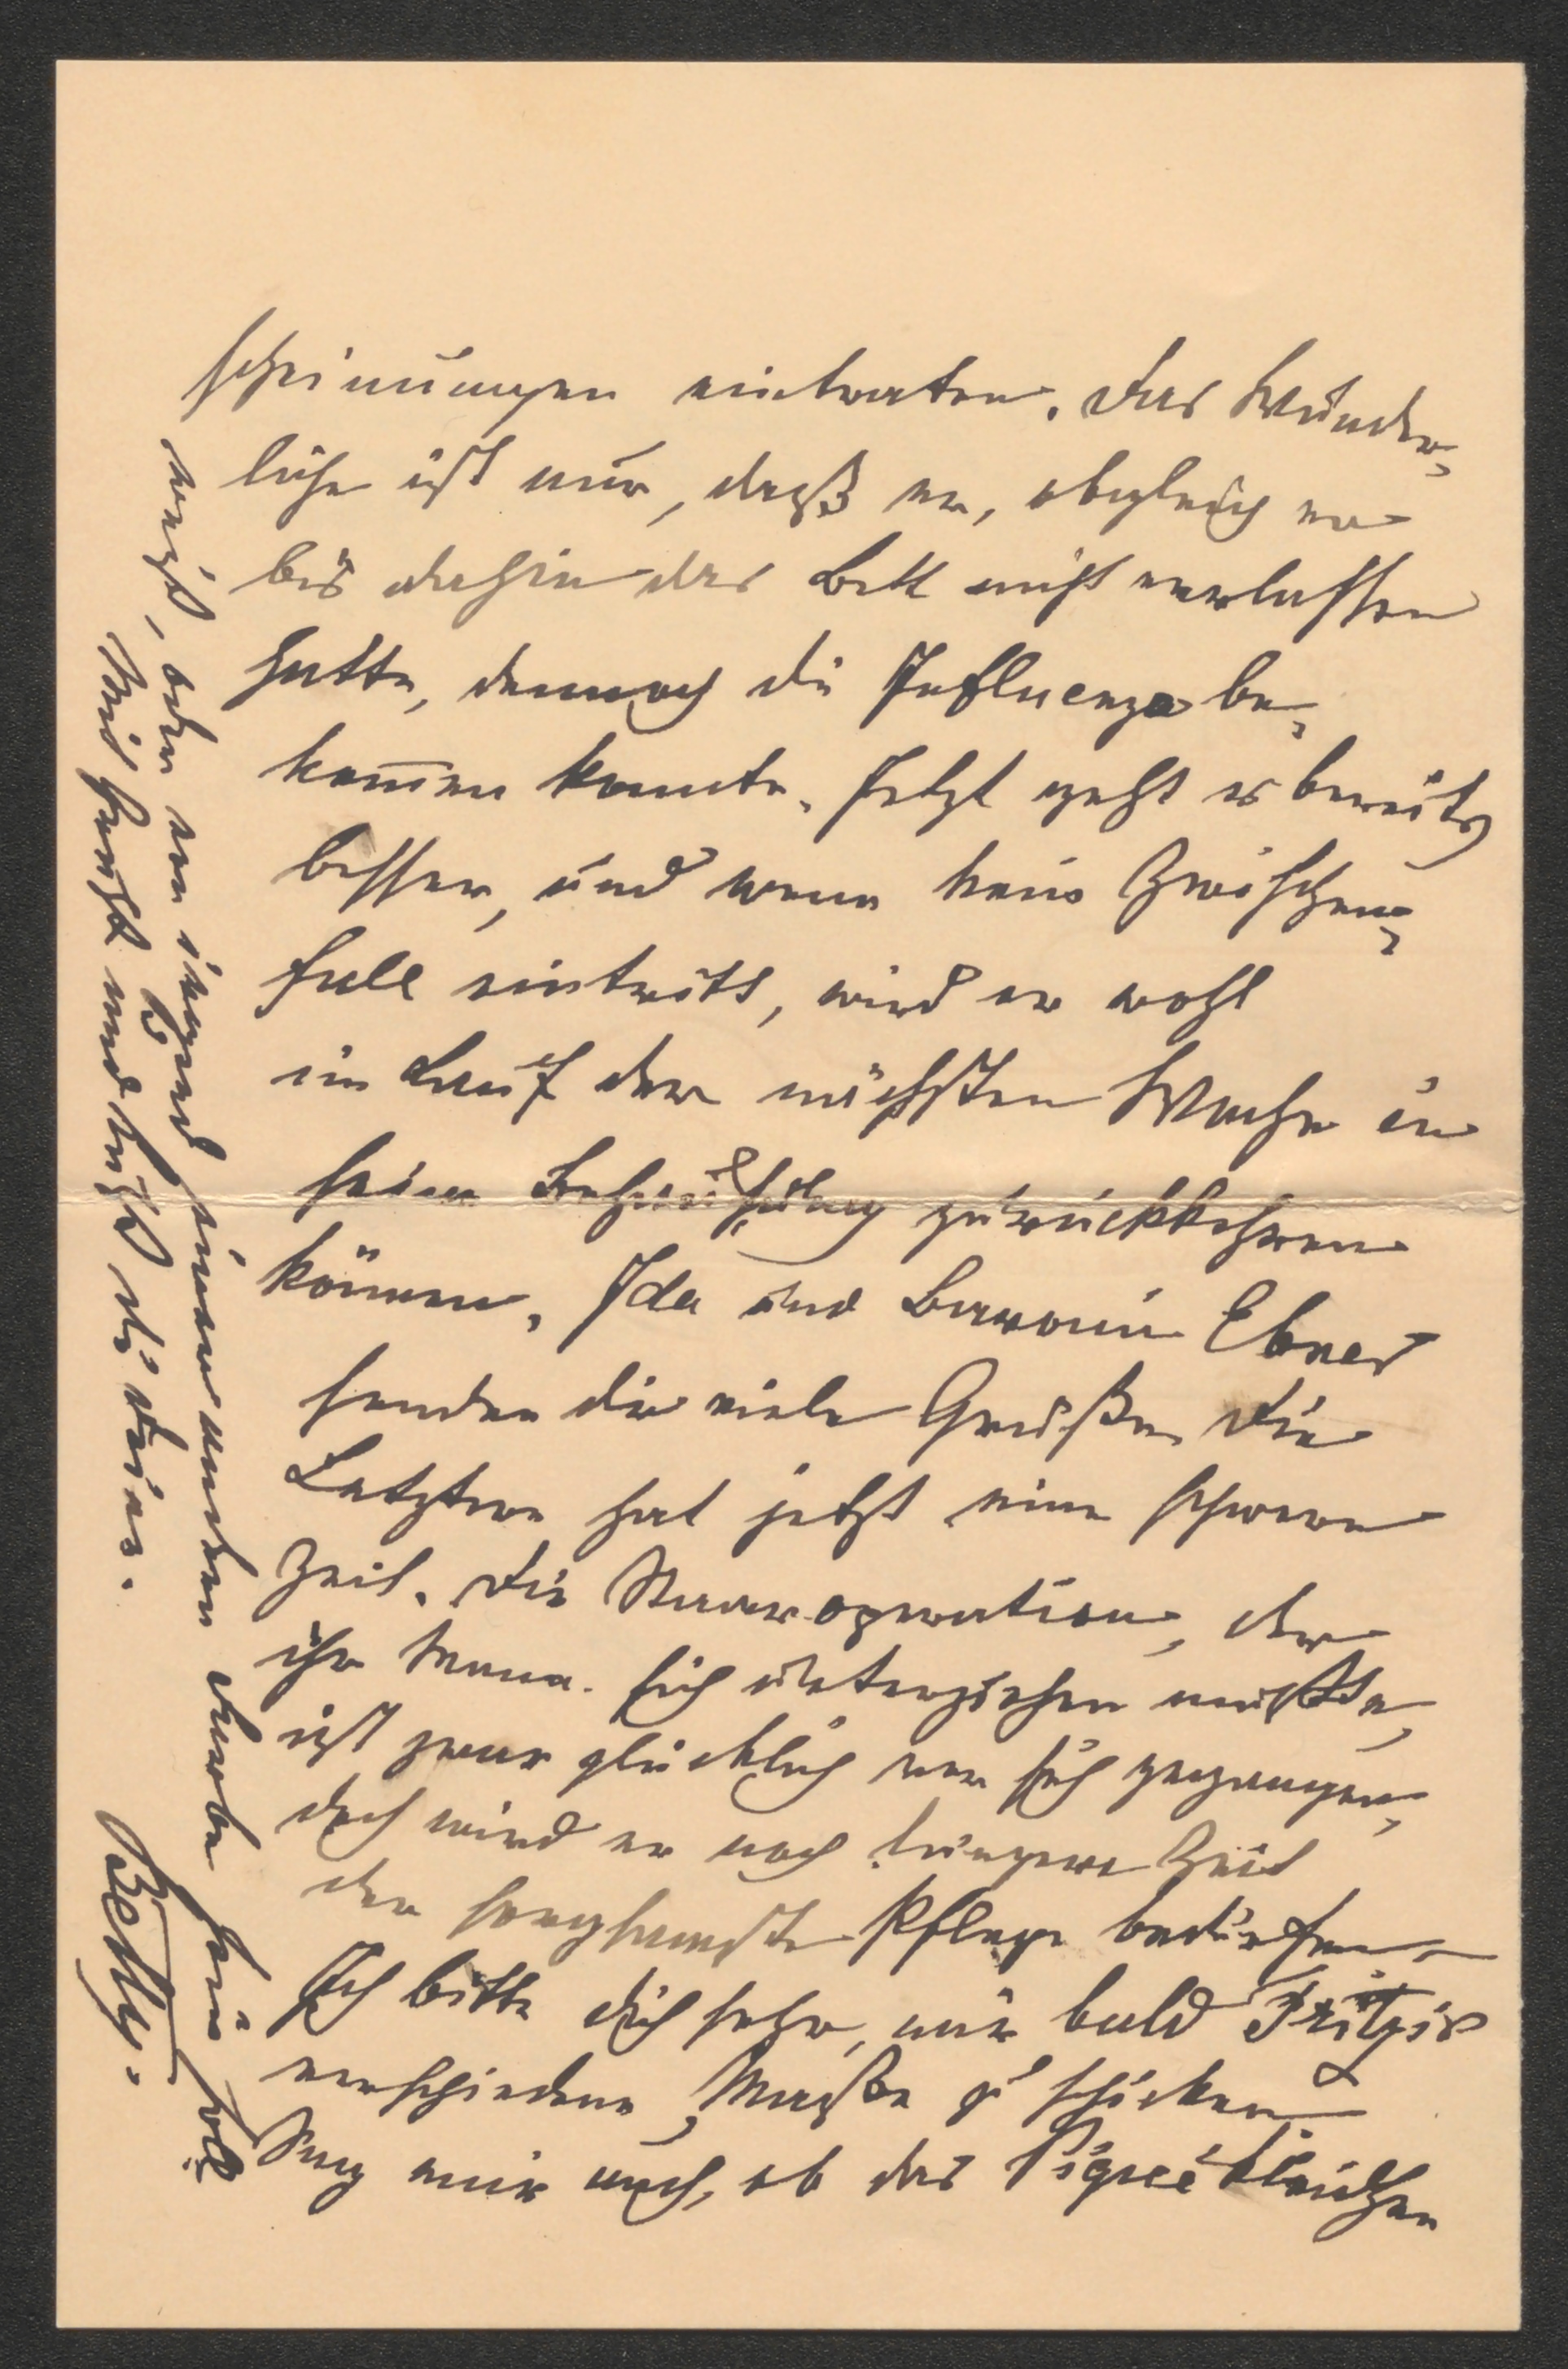 scheinungen eintraten. Das Wunder-
liche ist nur, daß er, obgleich er
bis dahin das Bett nicht verlassen
hatte, dennoch die Influenza be-
kommen konnte. Jetzt geht es bereits
besser, und wenn kein Zwischen-
fall eintritt, wird er wohl
im Lauf der nächsten Woche in
seine zurückkehren
können. Ida und Baronin Ebner
senden dir viele Grüße. Die
Letztere hat jetzt eine schwere
Zeit. Die Staaroperation, der
ihr Mann sich unterziehen mußte,
ist zwar glücklich vor sich gegangen,
doch wird er noch längere Zeit
der sorgsamsten Pflege bedürfen.
Ich bitte dich sehr, mir bald Fritzis
verschiedene Maße zu schicken.
Sag mir auch, ob das Piqueekleidchen
weiß, oder von irgend einer andern Farbe sein soll
Seid herzlich und
Betty.